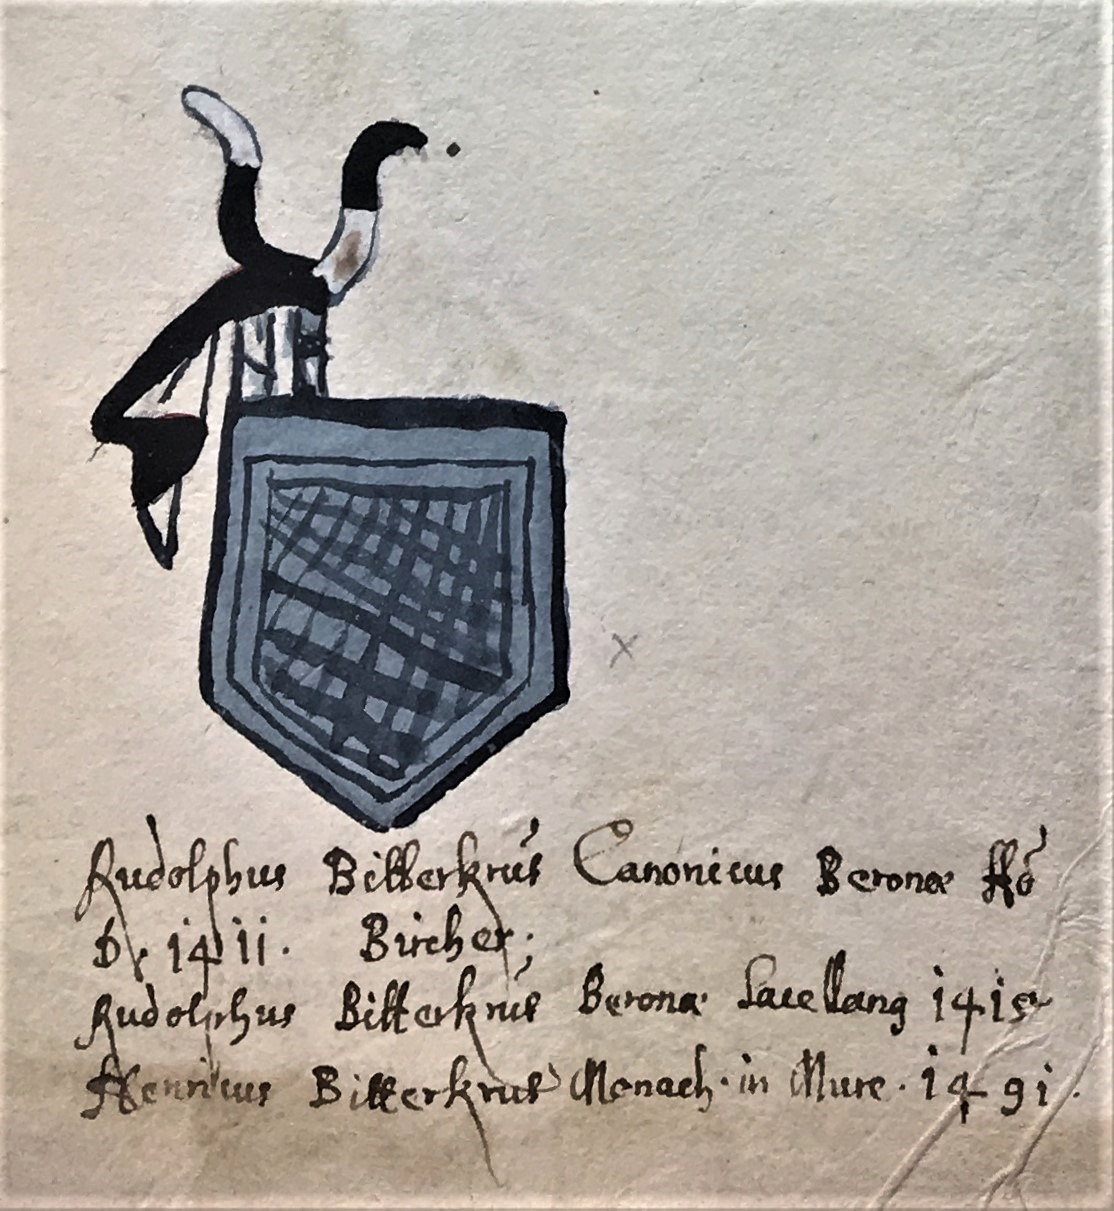 Rudolphus Bitterkrús Canonicus Beronæ Aõ
D. 1411. Bircher;
Rudolphus Bitterkrús Beronæ 141
Henricus Bitterkrus Monach. in Mure. 1491.